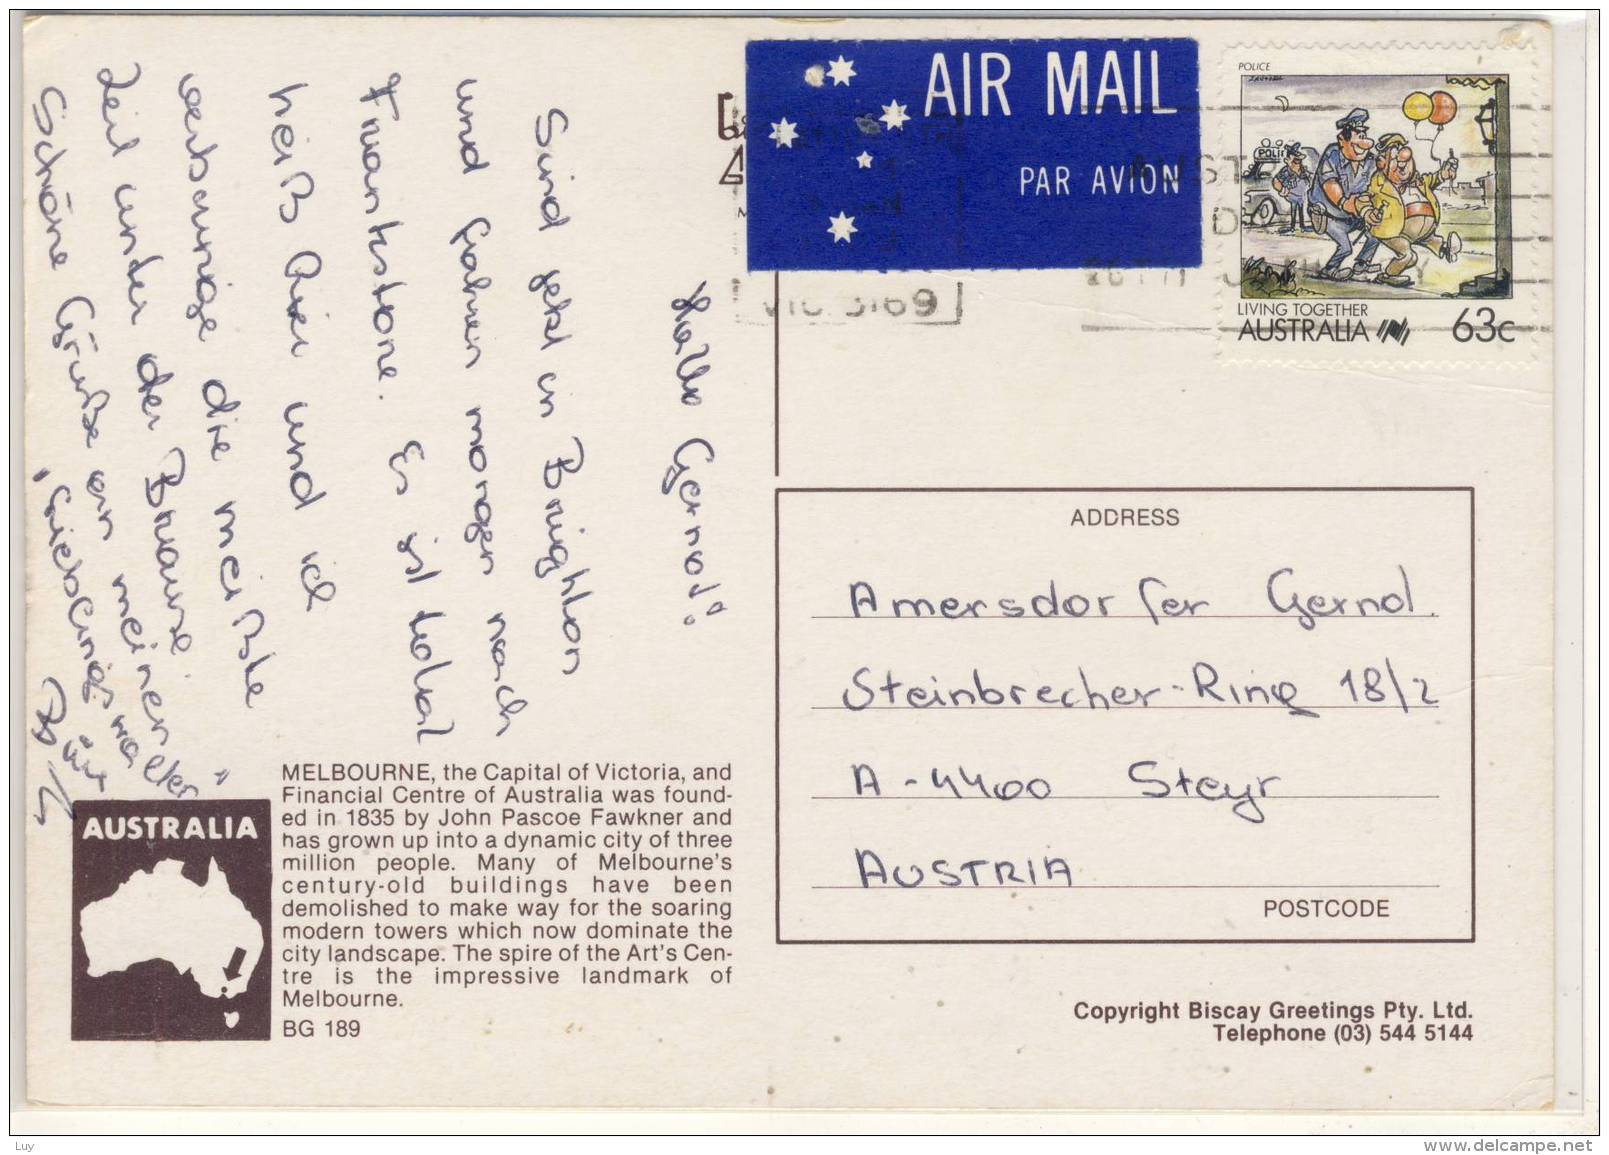 Hallo Gernot!
Sind jetzt in Brighton
und fahren morgen nach
Frankstone. Es ist total
heiß hier und ich
verbringe die meiste
Zeit unter der Brause.
Schöne Grüße an meinen
"Lieblingsmaler"
AIR MAIL
PAR AVION
POLICE
LIVING TOGETHER
AUSTRALIA 63c
AUST
VIC 3169
ADDRESS
Amersdorfer Gernot
Steinbrecher-Ring 18/2
A-4400 Steyr
AUSTRIA
POSTCODE
AUSTRALIA
MELBOURNE, the Capital of Victoria, and
Financial Centre of Australia was found-
ed in 1835 by John Pascoe Fawkner and
has grown up into a dynamic city of three
million people. Many of Melbourne's
century-old buildings have been
demolished to make way for the soaring
modern towers which now dominate the
city landscape. The spire of the Art's Cen-
tre is the impressive landmark of
Melbourne.
BG 189
Copyright Biscay Greetings Pty. Ltd.
Telephone (03) 544 5144
Luy
www.delcampe.net